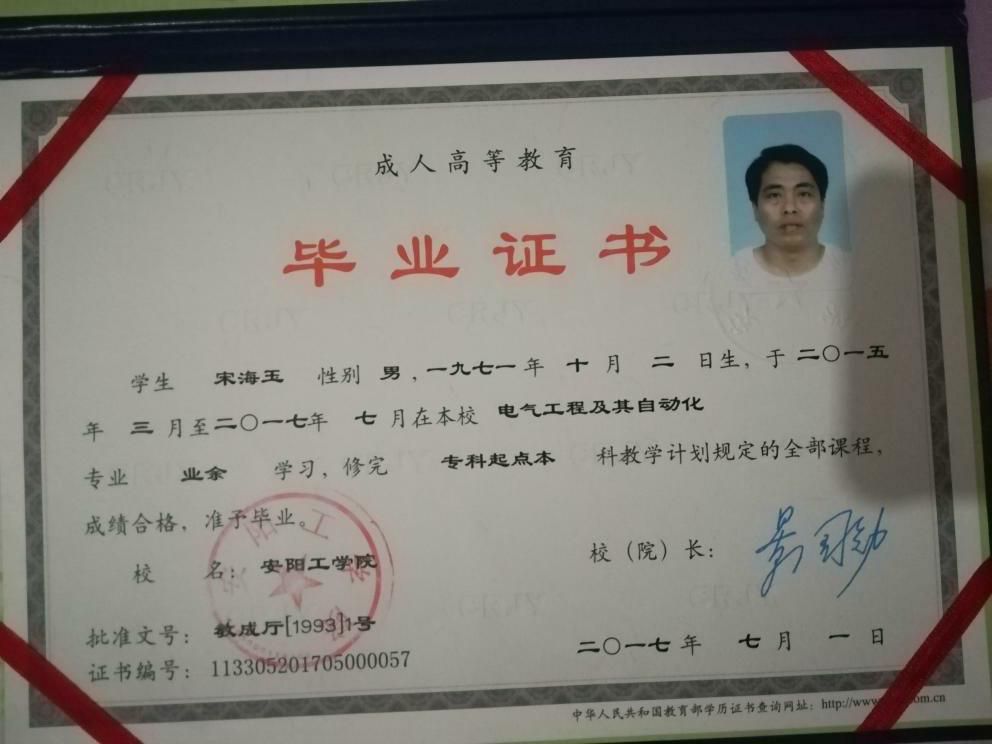 成人高等教育
毕业证书
学生 宋海玉 性别 男，一九七一年 十 月 二 日生，于二〇一五
年 三 月至二〇一七年 七 月在本校 电气工程及其自动化
专业 业余 学习，修完 专科起点本 科教学计划规定的全部课程，
成绩合格，准予毕业。
校 名： 安阳工学院
校（院）长：
批准文号： 教成厅[1993]1号
二〇一七年 七 月 一 日
证书编号： 113305201705000057
中华人民共和国教育部学历证书查询网址：http://www.